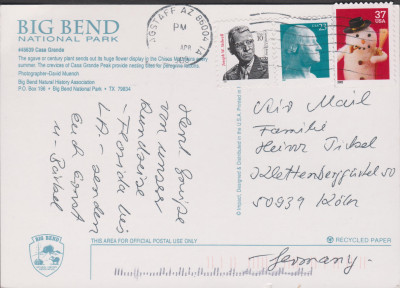 BIG BEND
NATIONAL PARK
#49839 Casa Grande
The agave or century plant sends out its huge flower display in the Chisos Mountains every
summer. The crevices of Casa Grande Peak provide nesting sites for peregrine falcons.
Photographer-David Muench
Big Bend Natural History Association
P.O. Box 196 • Big Bend National Park • TX 79834
FLAGSTAFF AZ 86004
PM
APR
37
USA
Air Mail
Familie
Heinz
Klettenberggürtel 50
50939 Köln
Germany
Herzl. Grüsse
von unserer
Rundreise
- Florida bis
LA - senden
Euch Ernst
u-Bärbel
© Impact, Designed & Distributed in the U.S.A. Printed in
BIG BEND
THIS AREA FOR OFFICIAL POSTAL USE ONLY
RECYCLED PAPER